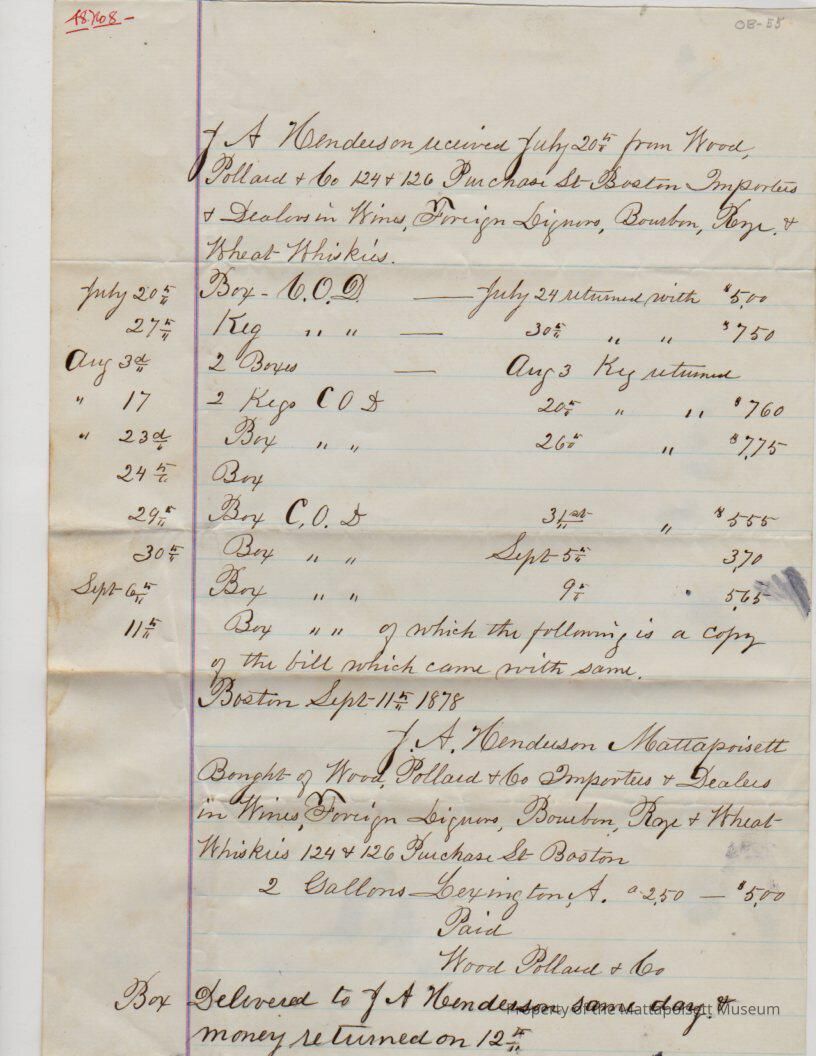 18768-
OB-55
J A Henderson received July 20th from Wood,
Pollard & Co 124 & 126 Purchase St Boston Importers
& Dealers in Wines, Foreign Liquors, Bourbon, Rye, &
Wheat Whiskies.
July 20th Box - C.O.D — July 24 returned with $5,00
27th Keg " " — 30th " " $750
Aug 3d 2 Boxes — Aug 3 Keg returned
" 17 2 Kegs C O D 20th " " $760
" 23d Box " " 26th " $7,75
24th Box
29th Box C,O. D 31st " $555
30th Box " " Sept 5th 3,70
Sept 6th Box " " 9th 5,65
11th Box " " of which the following is a copy
of the bill which came with same.
Boston Sept 11th 1878
J. A. Henderson Mattapoisett
Bought of Wood, Pollard & Co Importers & Dealers
in Wines, Foreign Liquors, Bourbon, Rye & Wheat
Whiskies 124 & 126 Purchase St Boston
2 Gallons Lexington, A. a 2,50 — $5,00
Paid
Wood Pollard & Co
Box Delivered to J A Henderson same day &
money returned on 12th
Property of the Mattapoisett Museum